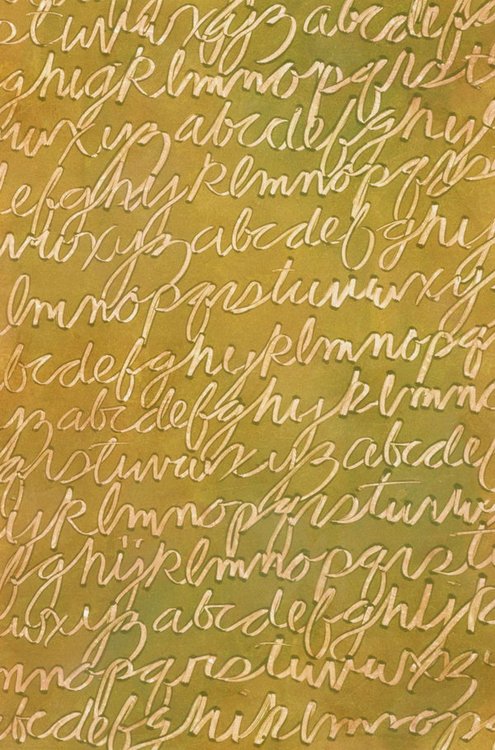 stuvwxyz abcdefg
ghijklmnopqrst
uvwxyz abcdefghij
defghijklmnopqrs
vwxyz abcdefghij
lmnopqrstuvwxy
abcdefghijklmnopq
yz abcdefghijklmn
qrstuvwxyz abcdef
ijklmnopqrstuvw
fghijklmnopqrst
uvwxyz abcdefghijk
mnopqrstuvwxyz
abcdefghijklmnop